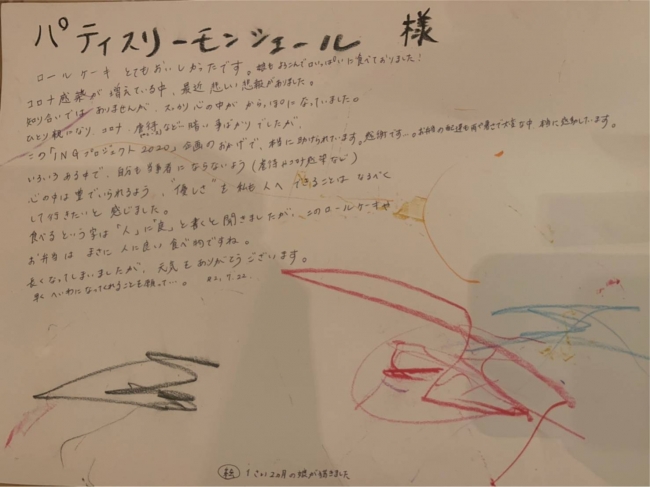 パティスリーモンシェール 様
ロールケーキ とてもおいしかったです。娘もよろこんで口いっぱいに食べておりました！
コロナ感染が 増えている中、最近 悲しい 悲報がありました。
知り合いでは ありませんが、スッカリ心の中が からっぽになっていました。
ひとり親になり コロナ、虐待、などと暗い事ばかりでしたが、
この「INGプロジェクト2020」企画のおかげで、本当に助けられています。感謝です…。お弁当の配達も
いろいろある中で、自分も当事者にならないよう（虐待やコロナ感染など）
心の中は 豊でいられるよう、"優しさ"を 私も 人へ できることは なるべく
して行きたいと 感じました。
食べる という字は「人」に「良」と書くと 聞きましたが、このロールケーキや
お弁当は まさに 人に良い 食べ物ですね。
長くなってしまいましたが、元気を ありがとう ございます。
早く へいわになってくれることも願って…。 R2.7.22.
1さい2ヵ月の娘が描きました